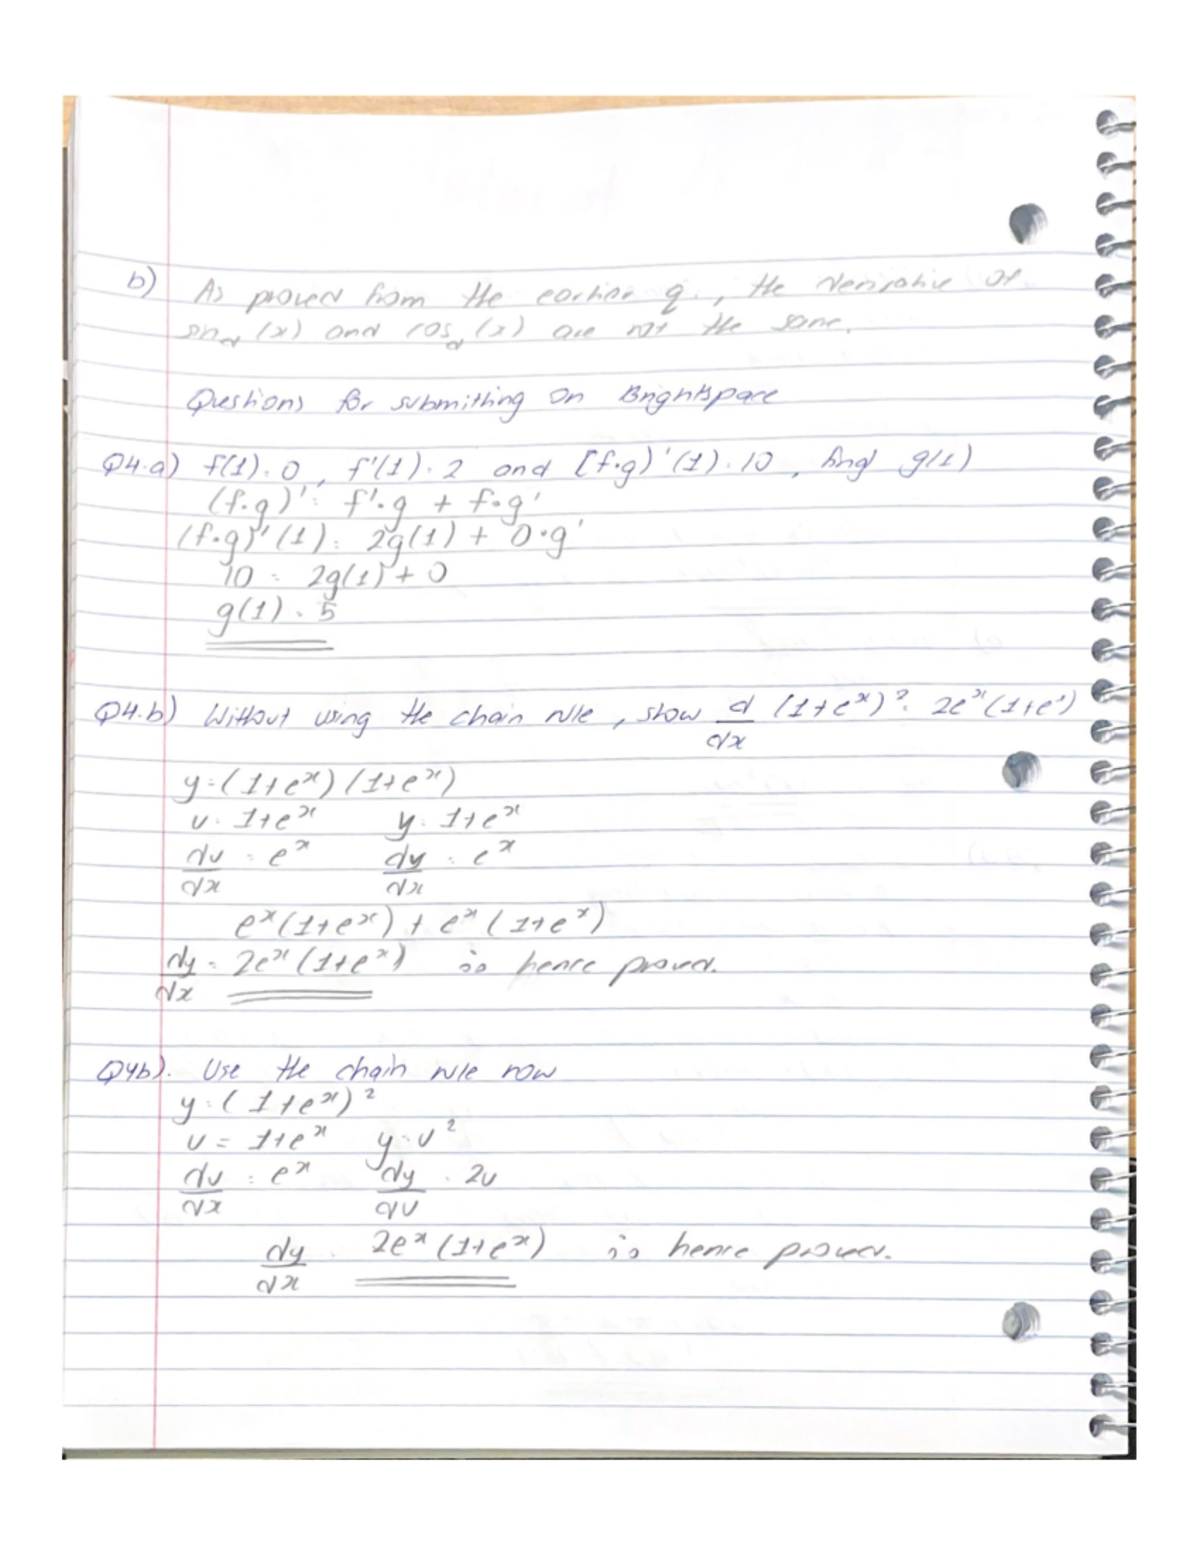 b) As proved from the earlier q., the derivative of
sin_d (x) and cos_d (x) are not the same.
Questions for submitting on Brightspace
Q4.a) f(1) = 0, f'(1) = 2 and [f·g]'(1) = 10, find g(1)
(f·g)' = f'·g + f·g'
(f·g)'(1) = 2g(1) + 0·g'
10 = 2g(1) + 0
g(1) = 5
Q4.b) Without using the chain rule, show d/dx (1+e^x)^2 = 2e^x(1+e^x)
y = (1+e^x)(1+e^x)
u = 1+e^x y = 1+e^x
du/dx = e^x dy/dx = e^x
e^x(1+e^x) + e^x(1+e^x)
dy/dx = 2e^x(1+e^x) is hence proved.
Q4b). Use the chain rule now
y = (1+e^x)^2
u = 1+e^x y = u^2
du/dx = e^x dy/du = 2u
dy/dx = 2e^x(1+e^x) is hence proved.